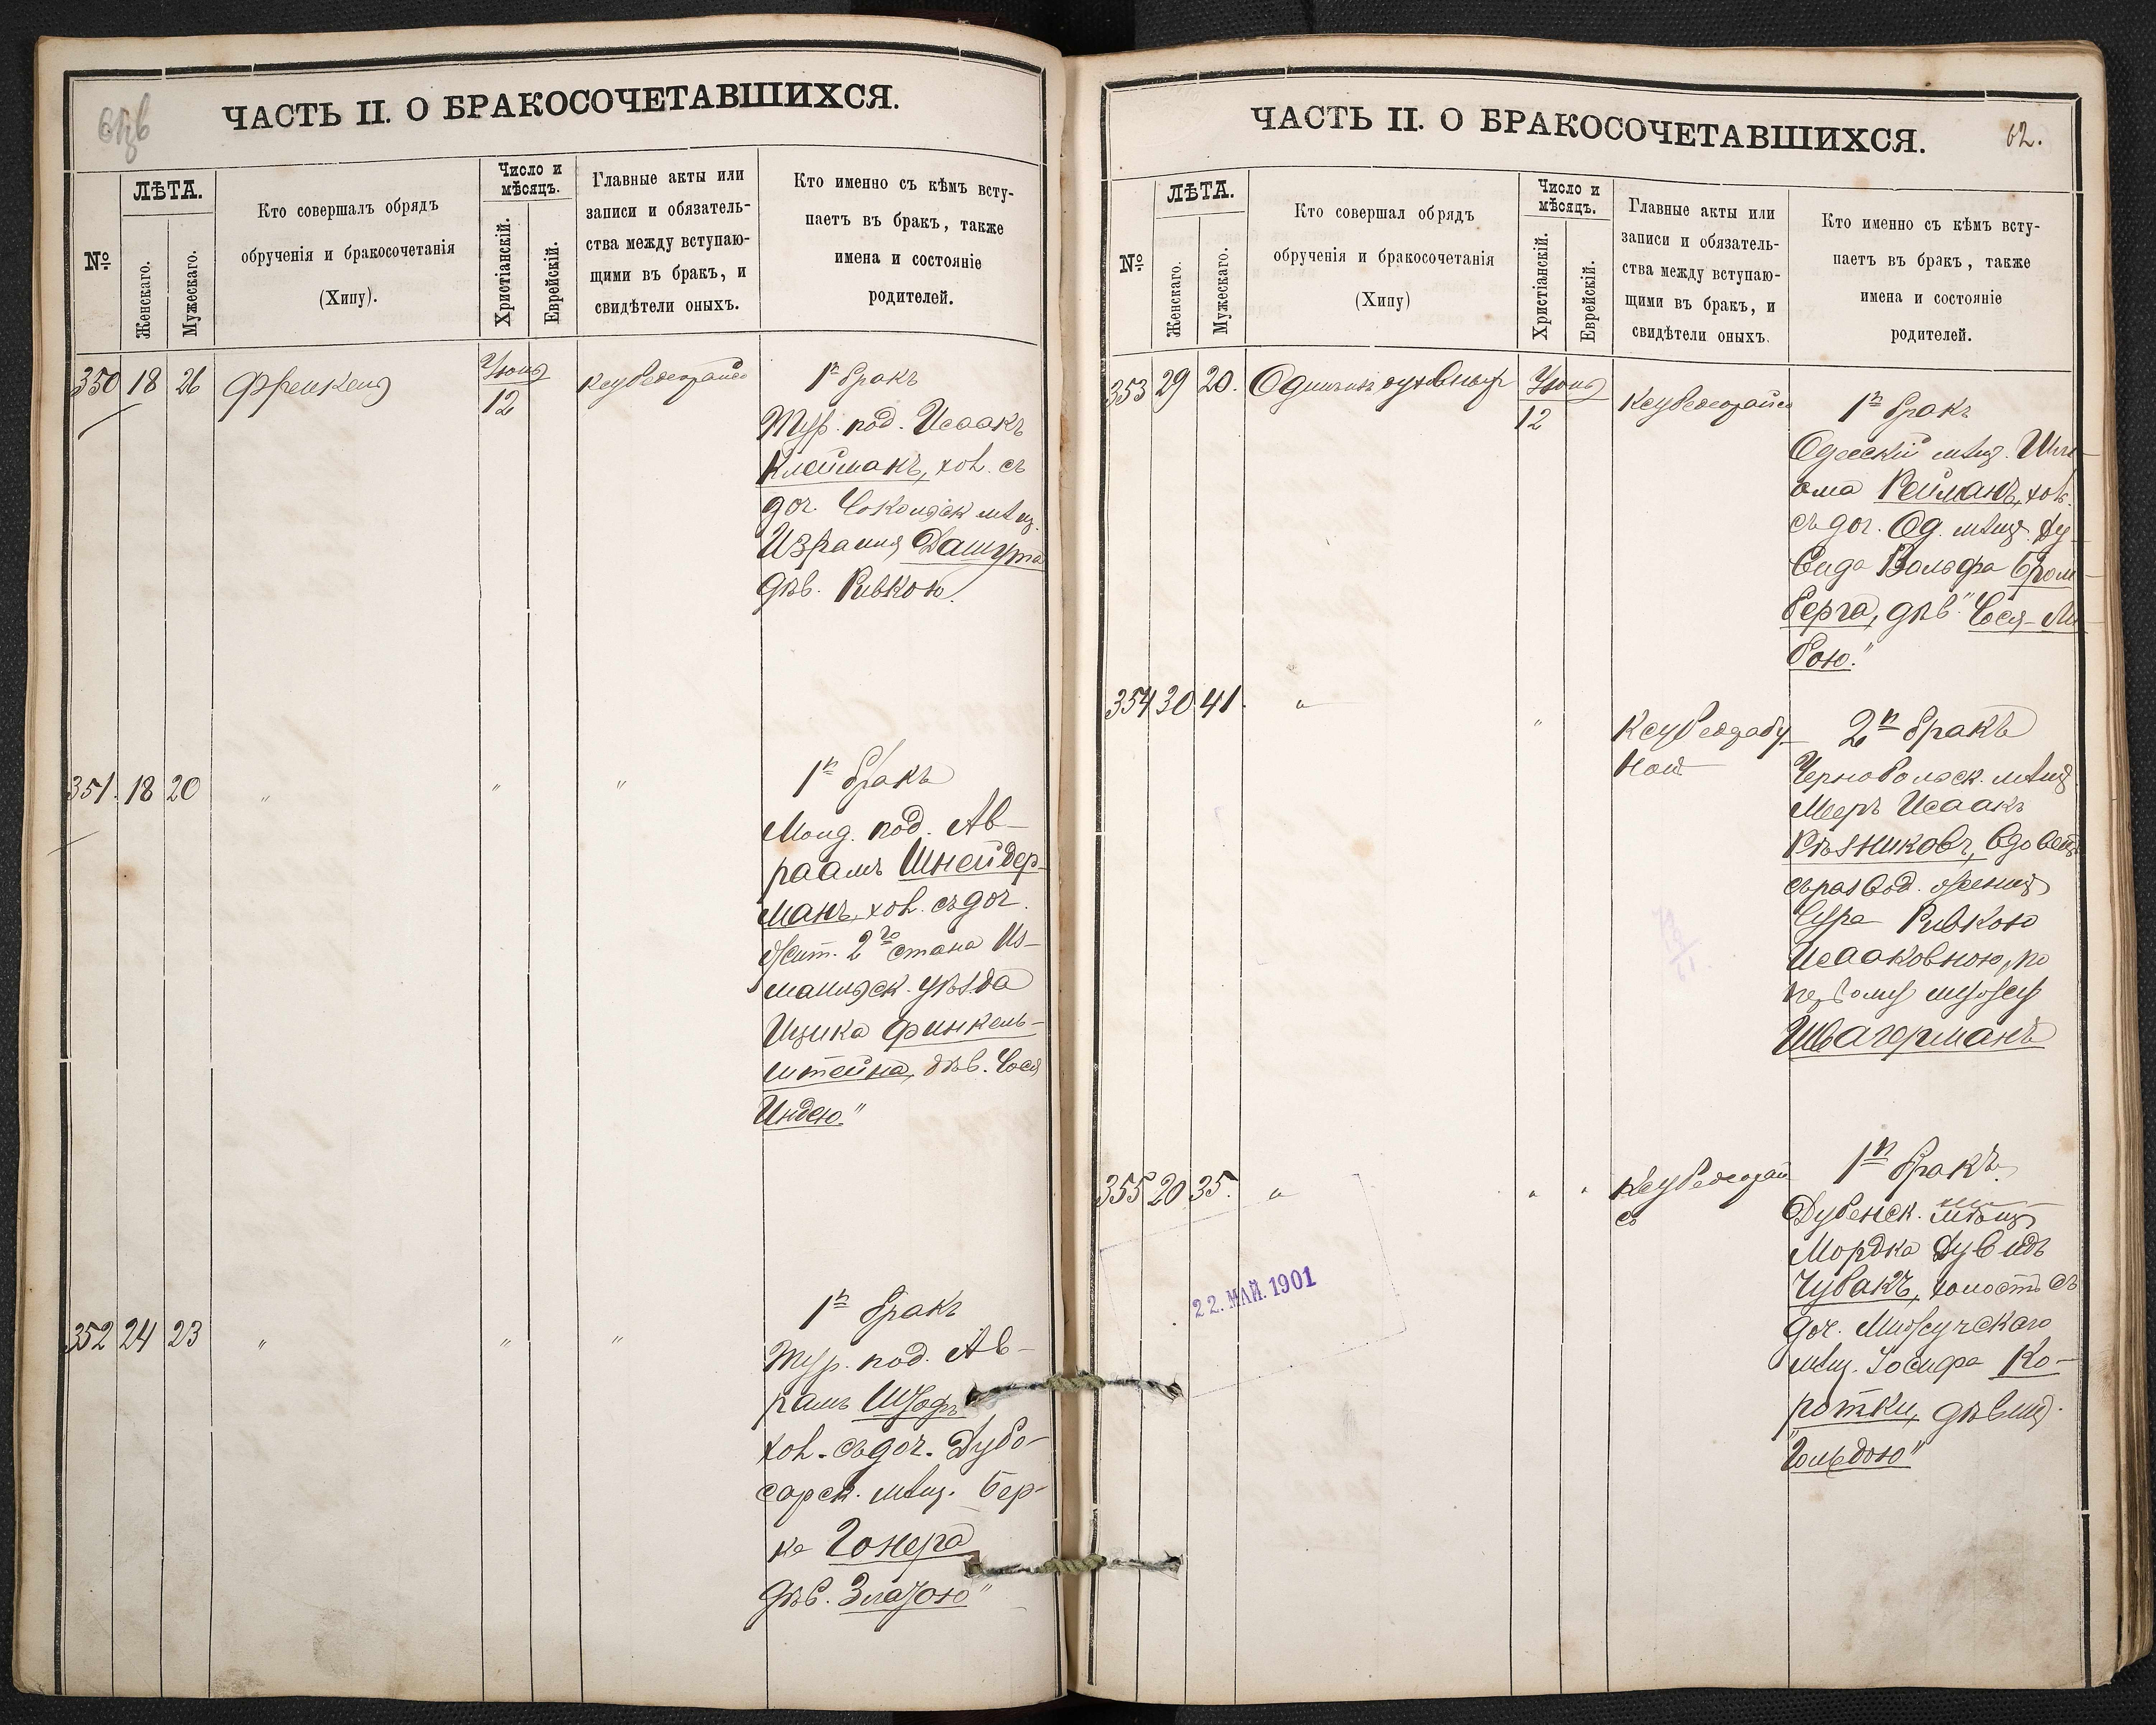 ЧАСТЬ II. О БРАКОСОЧЕТАВШИХСЯ.
№
ЛѢТА.
Женскаго.
Мужескаго.
Кто совершалъ обрядъ
обрученія и бракосочетанія
(Хипу).
Число и
мѣсяцъ.
Христіанскій.
Еврейскій.
Главные акты или
записи и обязатель-
ства между вступаю-
щими въ бракъ, и
свидѣтели оныхъ.
Кто именно съ кѣмъ всту-
паетъ въ бракъ, также
имена и состояніе
родителей.
350 18 26 Френкель
Іюня
12
1й бракъ
Тур. под. Исаакъ
Клейманъ, хол. съ
доч. мѣщ.
Израиля Дашута
дѣв. Ривкою.
351. 18 20 " " "
1й бракъ
Молд. под. Ав-
раамъ Шнейдер-
манъ, хол. съ доч.
жит. 2го стана Из-
маильск. уѣзда
Ицика Финкель-
штейна, дѣв. Сося
Индею."
352 24 23 " " "
1й бракъ
Тур. под. Ав-
рамъ
хол. съ доч. Дубо-
сарск. мѣщ. Бер-
ка Гонера
дѣв. Златою"
ЧАСТЬ II. О БРАКОСОЧЕТАВШИХСЯ.
62.
№
ЛѢТА.
Женскаго.
Мужескаго.
Кто совершал обрядъ
обрученія и бракосочетанія
(Хипу)
Число и
мѣсяцъ.
Христіанскій.
Еврейскій.
Главные акты или
записи и обязатель-
ства между вступаю-
щими въ бракъ, и
свидѣтели оныхъ.
Кто именно съ кѣмъ всту-
паетъ въ бракъ, также
имена и состояніе
родителей.
353 29 20.
Іюня
12
1й бракъ
Одесскій мѣщ.
Рейманъ, хол.
съ доч. Од. мѣщ. Ду-
вида Вольфа Бром-
берга, дѣв. "Сося-Ли-
бою."
354 30 41. " "
2й бракъ
Чернобольск. мѣщ.
Мееръ Исаакъ
Рѣзниковъ, вдовецъ
съ развод.
Сура Ривкою
Исааковною, по
первому мужу
Швагерманъ
355 20 35. " " "
1й бракъ.
Дубенск. мѣщ.
Мордка Дувидъ
Чубакъ, холостъ съ
доч. Мизочскаго
мѣщ. Іосифа Ко-
ротки, дѣвиц.
"Гольдою"
22. МАЙ. 1901